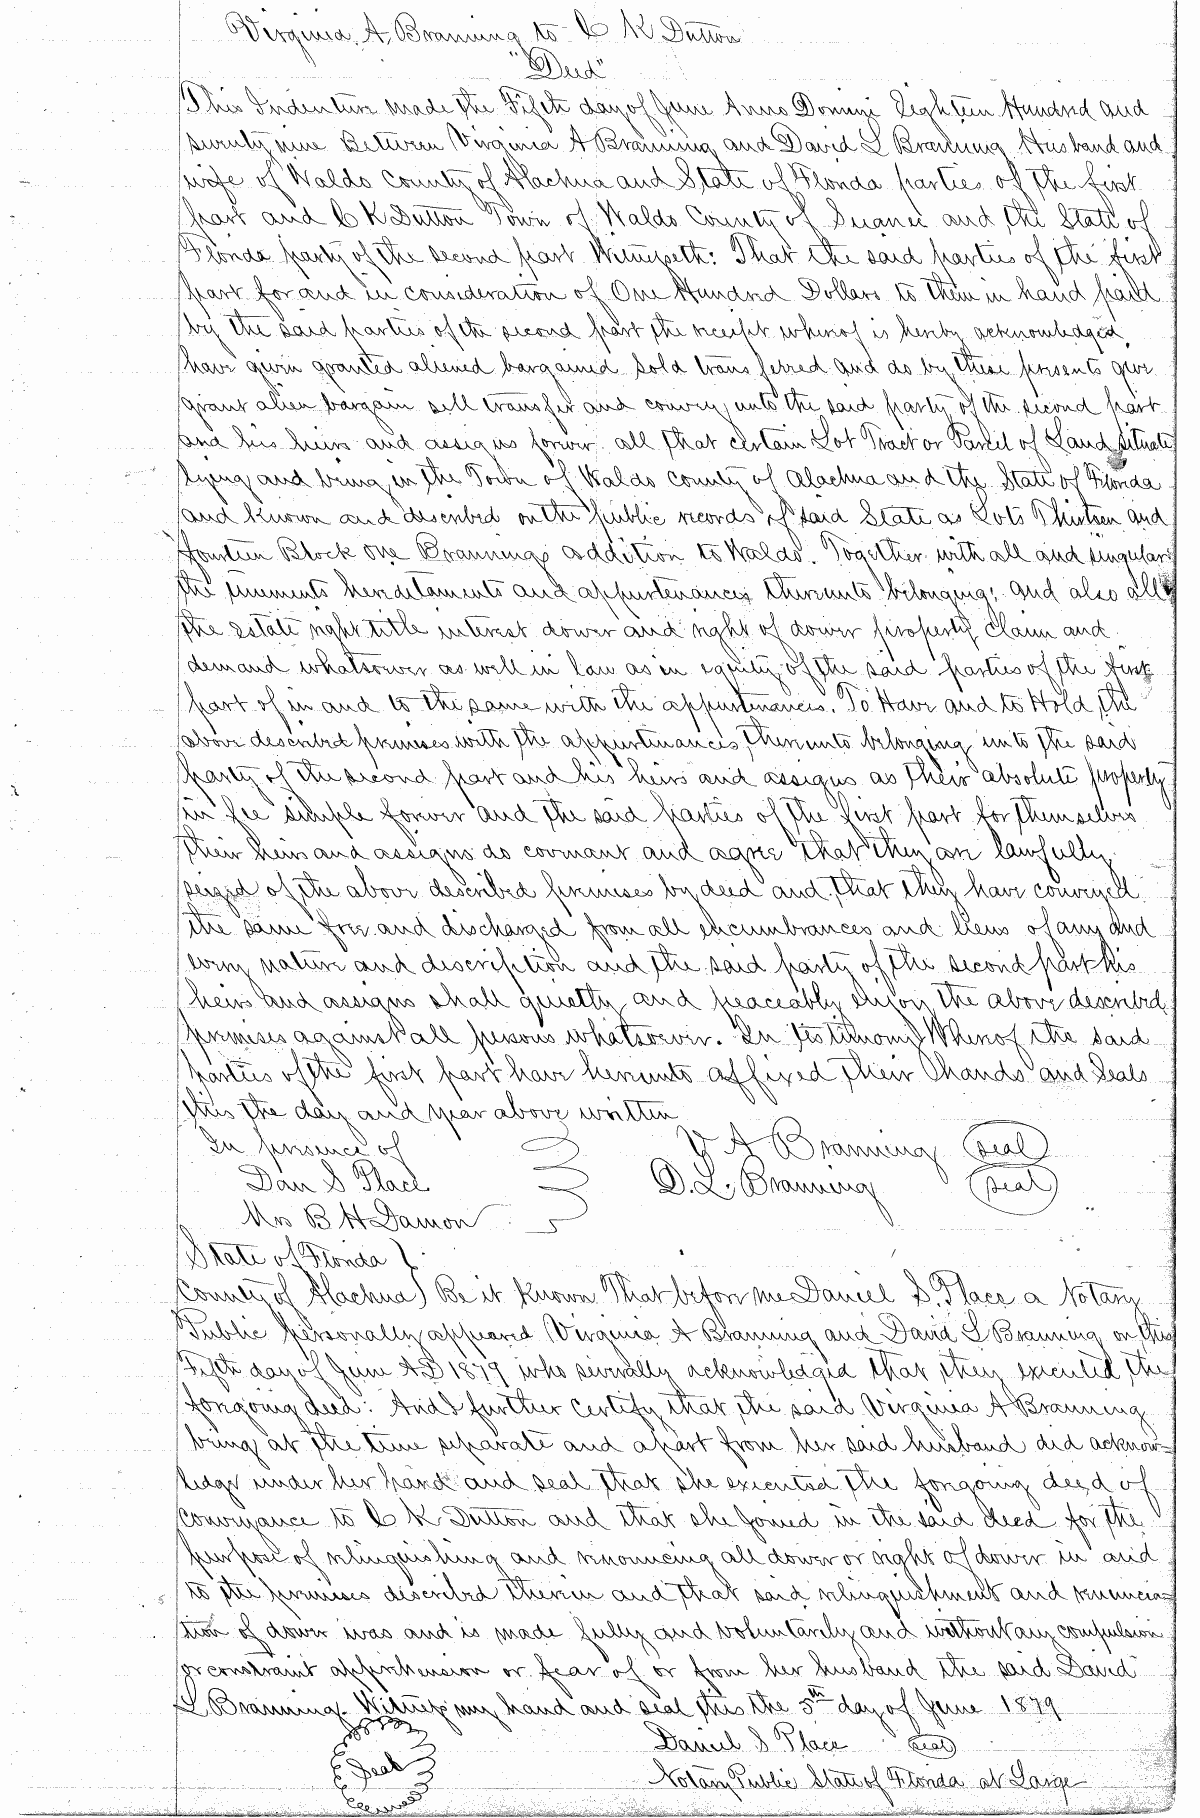 Virginia A Branning to C K Dutton
"Deed"
This Indenture made the Fifth day of June Anno Domini Eighteen Hundred and
seventy nine Between Virginia A Branning and David L Branning Husband and
wife of Waldo County of Alachua and State of Florida parties of the first
part and C K Dutton Town of Waldo County of Suanee and the State of
Florida party of the second part Witnesseth: That the said parties of the first
part for and in consideration of One Hundred Dollars to them in hand paid
by the said parties of the second part the receipt whereof is hereby acknowledged,
have given granted aliened bargained sold transferred and do by these presents give
grant alien bargain sell transfer and convey unto the said party of the second part
and his heirs and assigns forever all that certain Lot Tract or Parcel of Land situate
lying and being in the Town of Waldo County of Alachua and the State of Florida
and known and described on the public records of said State as Lots Thirteen and
fourteen Block One Brannings addition to Waldo. Together with all and singular
the tenements hereditaments and appurtenances thereunto belonging; and also all
the estate right title interest dower and right of dower property claim and
demand whatsoever as well in law as in equity of the said parties of the first
part of in and to the same with the appurtenances. To Have and to Hold the
above described premises with the appurtenances thereunto belonging unto the said
party of the second part and his heirs and assigns as their absolute property
in fee simple forever and the said parties of the first part for themselves
their heirs and assigns do covenant and agree that they are lawfully
seized of the above described premises by deed and that they have conveyed
the same free and discharged from all encumbrances and liens of any and
every nature and description and the said party of the second part his
heirs and assigns shall quietly and peaceably enjoy the above described
premises against all persons whatsoever. In testimony Whereof the said
parties of the first part have hereunto affixed their hands and Seals
this the day and year above written
In presence of V A Branning (seal)
Dan S Place D. L. Branning (seal)
Mrs B H Damon
State of Florida }
County of Alachua) Be it Known That before me Daniel S. Place a Notary
Public personally appeared Virginia A Branning and David L Branning on this
Fifth day of June A.D 1879 who severally acknowledged that they executed the
foregoing deed: And I further certify that the said Virginia A Branning
being at the time separate and apart from her said husband did acknow-
ledge under her hand and seal that she executed the foregoing deed of
conveyance to C K Dutton and that she joined in the said deed for the
purpose of relinquishing and renouncing all dower or right of dower in and
to the premises described therein and that said relinquishment and renuncia-
tion of dower was and is made fully and voluntarily and without any compulsion
or constraint apprehension or fear of or from her husband the said David
L Branning. Witness my hand and seal this the 5th day of June 1879
Daniel S Place (seal)
Seal Notary Public State of Florida at Large